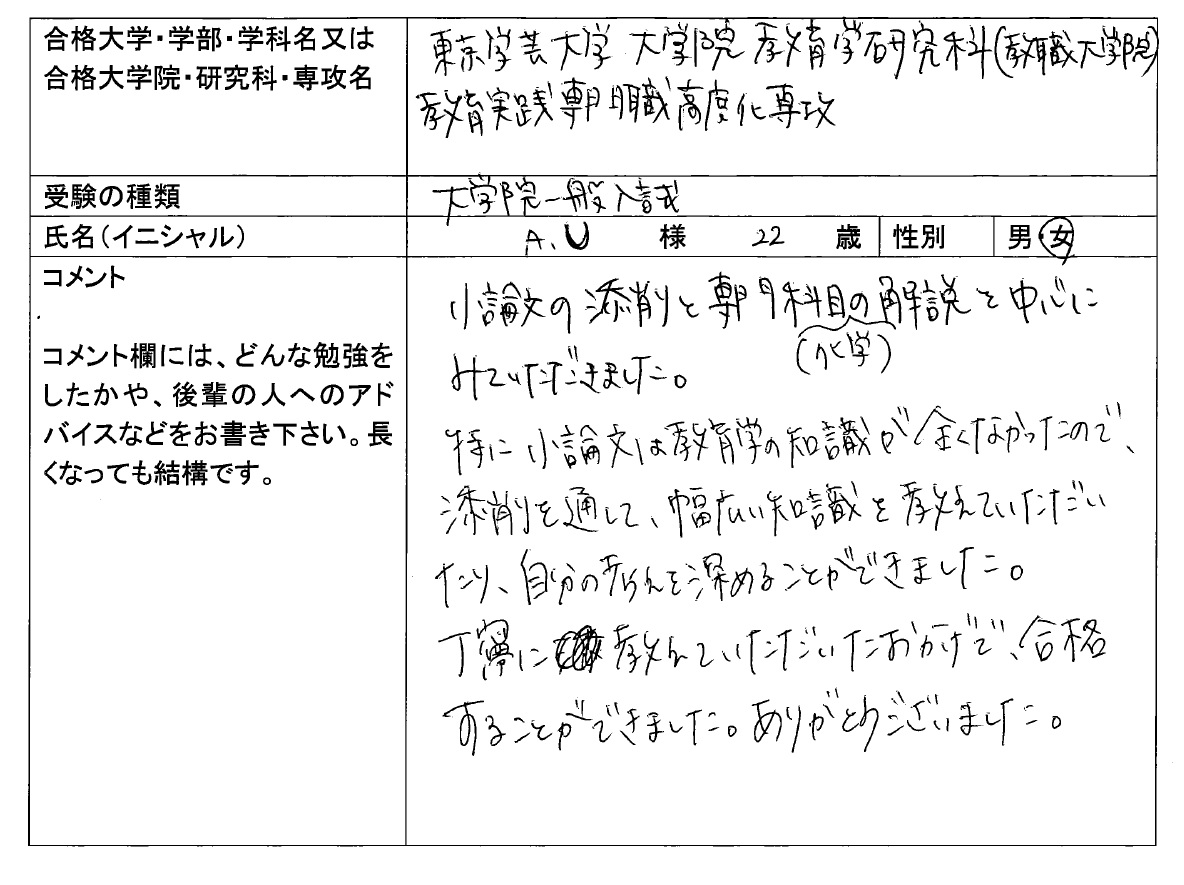 合格大学・学部・学科名又は
合格大学院・研究科・専攻名
東京学芸大学 大学院 教育学研究科(教職大学院)
教育実践専門職高度化専攻
受験の種類
大学院一般入試
氏名(イニシャル)
A.U 様 22 歳 性別 男・女
コメント
コメント欄には、どんな勉強を
したかや、後輩の人へのアド
バイスなどをお書き下さい。長
くなっても結構です。
小論文の添削と専門科目の解説を中心に
(化学)
みていただきました。
特に小論文は教育学の知識が全くなかったので、
添削を通して、幅広い知識を教えていただい
たり、自分の考えを深めることができました。
丁寧に教えていただいたおかげで、合格
することができました。ありがとうございました。